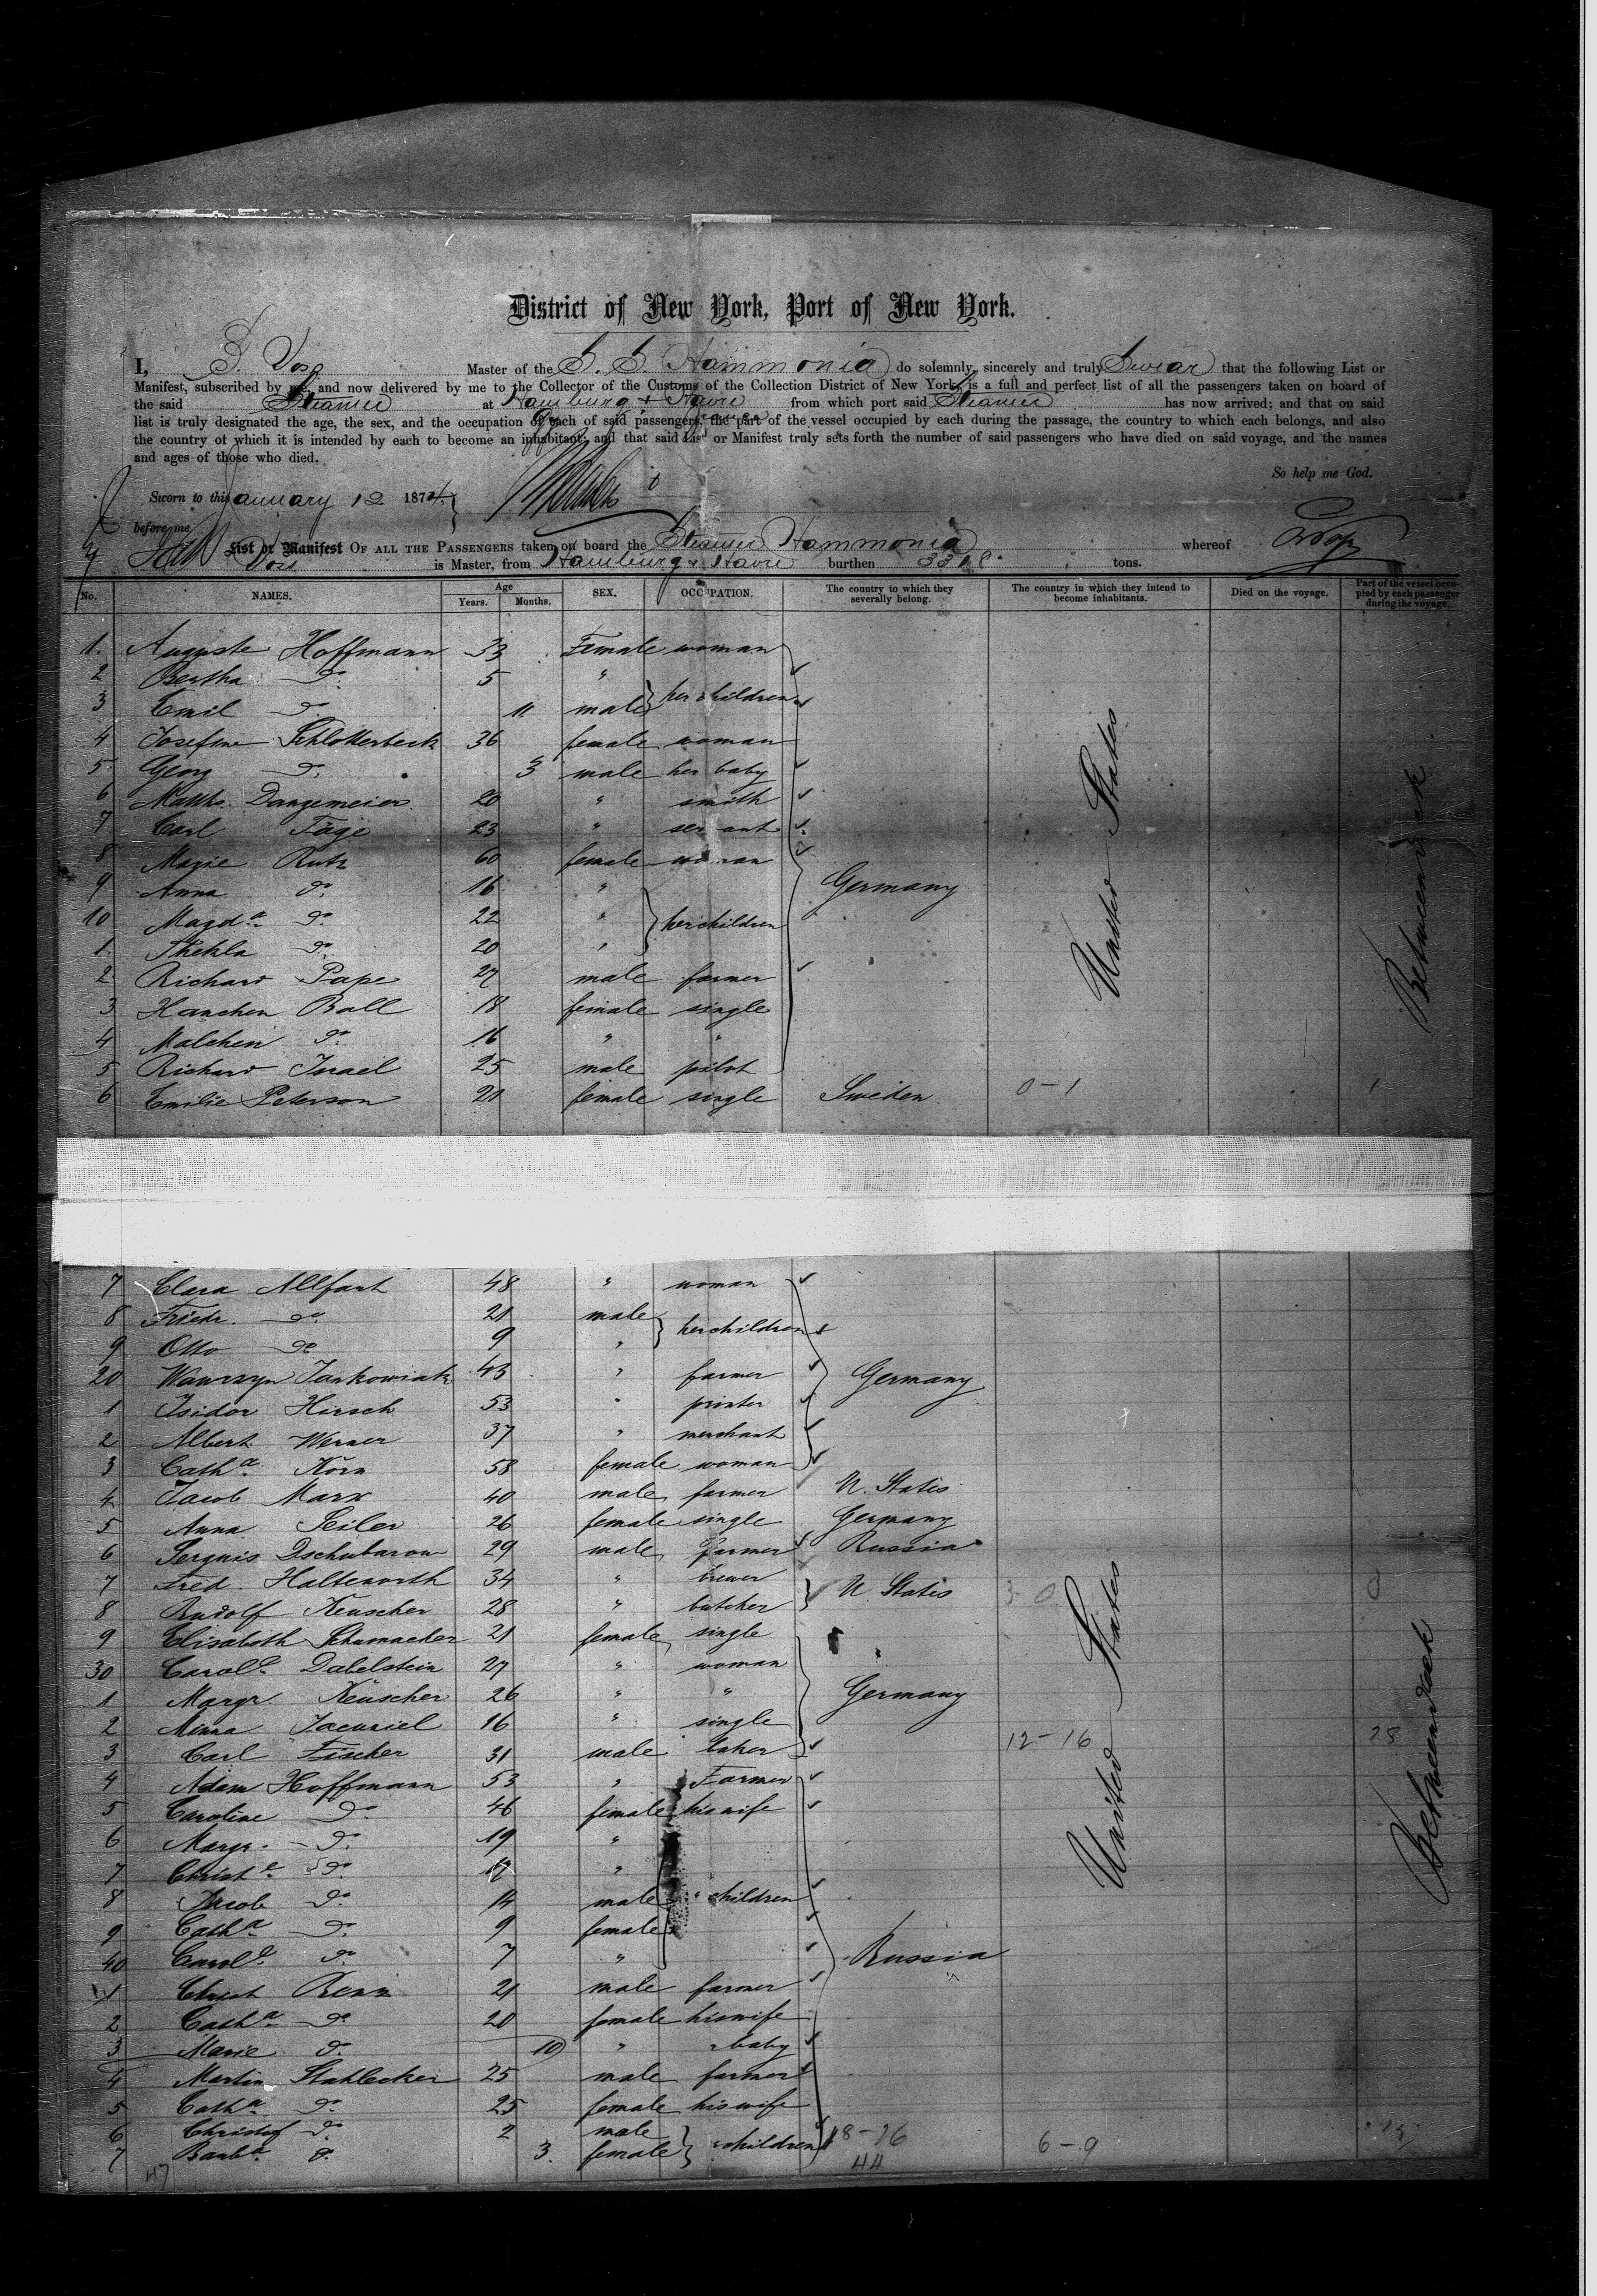 District of New York, Port of New York.
I, Voss Master of the S. S. Hammonia do solemnly, sincerely and truly Swear that the following List or
Manifest, subscribed by me, and now delivered by me to the Collector of the Customs of the Collection District of New York, is a full and perfect list of all the passengers taken on board of
the said Steamer at Hamburg & Havre from which port said Steamer has now arrived; and that on said
list is truly designated the age, the sex, and the occupation of each of said passengers, the part of the vessel occupied by each during the passage, the country to which each belongs, and also
the country of which it is intended by each to become an inhabitant; and that said List or Manifest truly sets forth the number of said passengers who have died on said voyage, and the names
and ages of those who died.
So help me God.
Sworn to this January 12 1874
before me
List or Manifest OF ALL THE PASSENGERS taken on board the Steamer Hammonia whereof
Voss is Master, from Hamburg & Havre burthen tons.
No. NAMES. Age Years. Months. SEX. OCCUPATION. The country to which they severally belong. The country in which they intend to become inhabitants. Died on the voyage. Part of the vessel occupied by each passenger during the voyage.
1. Auguste Hoffmann 33 Female woman
2 Bertha do. 5 "
3 Emil do. 11 male her children
4 Josefine Schlotterbeck 36 female woman
5 Georg do. 3 male her baby
6 Matths. Dangemeier 20 " smith
7 Carl Täge 23 " servant
8 Marie Rutz 60 female woman
9 Anna do. 16 " Germany
10 Magda. do. 22 " her children
1 Thekla do. 20 "
2 Richard Pape 27 male farmer
3 Hanchen Ball 18 female single
4 Malchen do. 16 " "
5 Richard Israel 25 male pilot
6 Emilie Peterson 21 female single Sweden 0-1 1
United States
Betweendeck
7 Clara Allfant 48 " woman
8 Friedr. do. 21 male her children
9 Otto do. 9 "
20 Wawrzyn Jankowiak 43 " farmer Germany
1 Isidor Hirsch 53 " printer
2 Albert Werner 37 " merchant
3 Catha. Korn 58 female woman
4 Jacob Marx 40 male farmer U. States
5 Anna Seiler 26 female single Germany
6 Serguis Dschubarow 29 male farmer Russia
7 Fred. Halteworth 34 " brewer U. States 3-0 0
8 Rudolf Keuscher 28 " butcher
9 Elisabeth Schumacher 21 female single
30 Carole. Dabelstein 27 " woman
1 Margr. Keuscher 26 " " Germany
2 Minna Jacuriel 16 " single
3 Carl Fischer 31 male baker 12-16 28
4 Adam Hoffmann 53 " Farmer
5 Caroline do. 46 female his wife
6 Margr. do. 19 "
7 Christe. do. 17 "
8 Jacob do. 14 male " children
9 Catha. do. 9 female
40 Carole. do. 7 " Russia
1 Christ Renz 21 male farmer
2 Catha. do. 20 female his wife
3 Marie do. 10 " " baby
4 Martin Stahlecker 25 male farmer
5 Catha. do. 25 female his wife
6 Christof do. 2 male children 18-26
7 Barba. do. 3 female 44 6-9
47
United States
Betweendeck